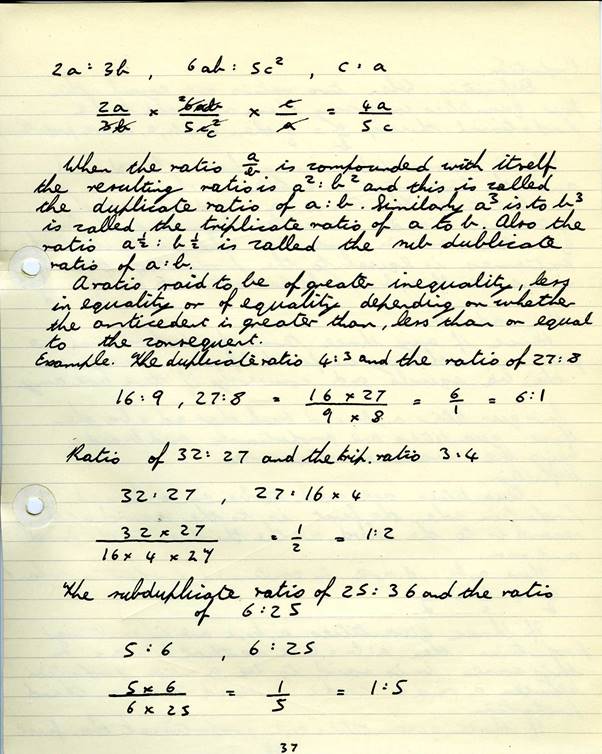 2a : 3b , 6ab : 5c² , c : a
2a/3b × ²6ab/5c²c × c/a = 4a/5c
When the ratio a/b is compounded with itself
the resulting ratio is a² : b² and this is called
the duplicate ratio of a : b. Similarly a³ is to b³
is called the triplicate ratio of a to b. Also the
ratio a½ : b½ is called the sub dublicate
ratio of a : b.
A ratio said to be of greater inequality, less
in equality or of equality depending on whether
the anticedent is greater than, less than or equal
to the consequent.
Example. The duplicate ratio 4 : 3 and the ratio of 27 : 8
16 : 9 , 27 : 8 = 16 × 27/9 × 8 = 6/1 = 6 : 1
Ratio of 32 : 27 and the trip. ratio 3 : 4
32 : 27 , 27 : 16 × 4
32 × 27/16 × 4 × 27 = 1/2 = 1 : 2
The subduplicate ratio of 25 : 36 and the ratio
of 6 : 25
5 : 6 , 6 : 25
5 × 6/6 × 25 = 1/5 = 1 : 5
37